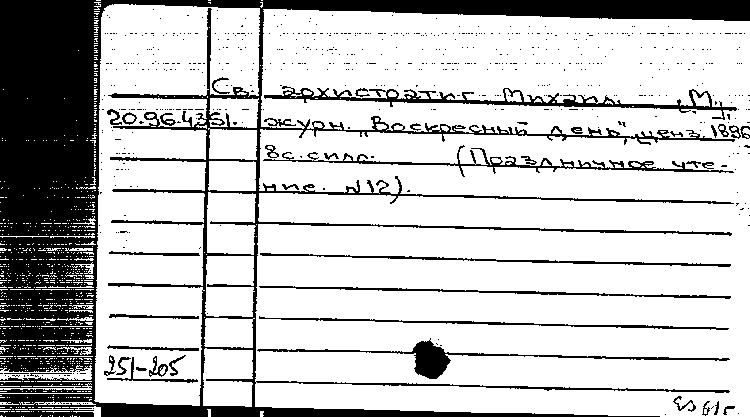 Св. архистратиг Михаил. [М.],
20.96.4.351. журн. "Воскресный день", ценз. 1896
8с. с илл. (Праздничное чте-
ние. N12).
251-205